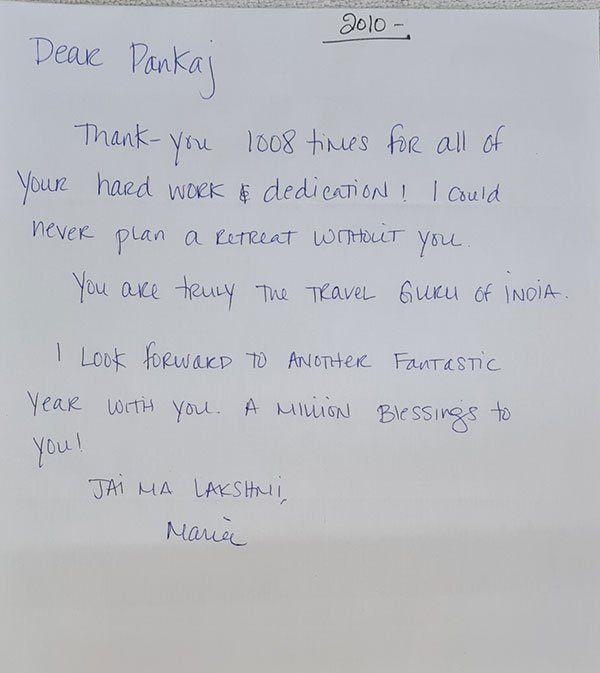 2010 -
Dear Pankaj
Thank-you 1008 times for all of
your hard work & dedication! I could
never plan a retreat without you.
You are truly the travel Guru of INDIA.
I look forward to another fantastic
year with you. A million Blessings to
you!
JAI MA LAKSHMI,
Maria